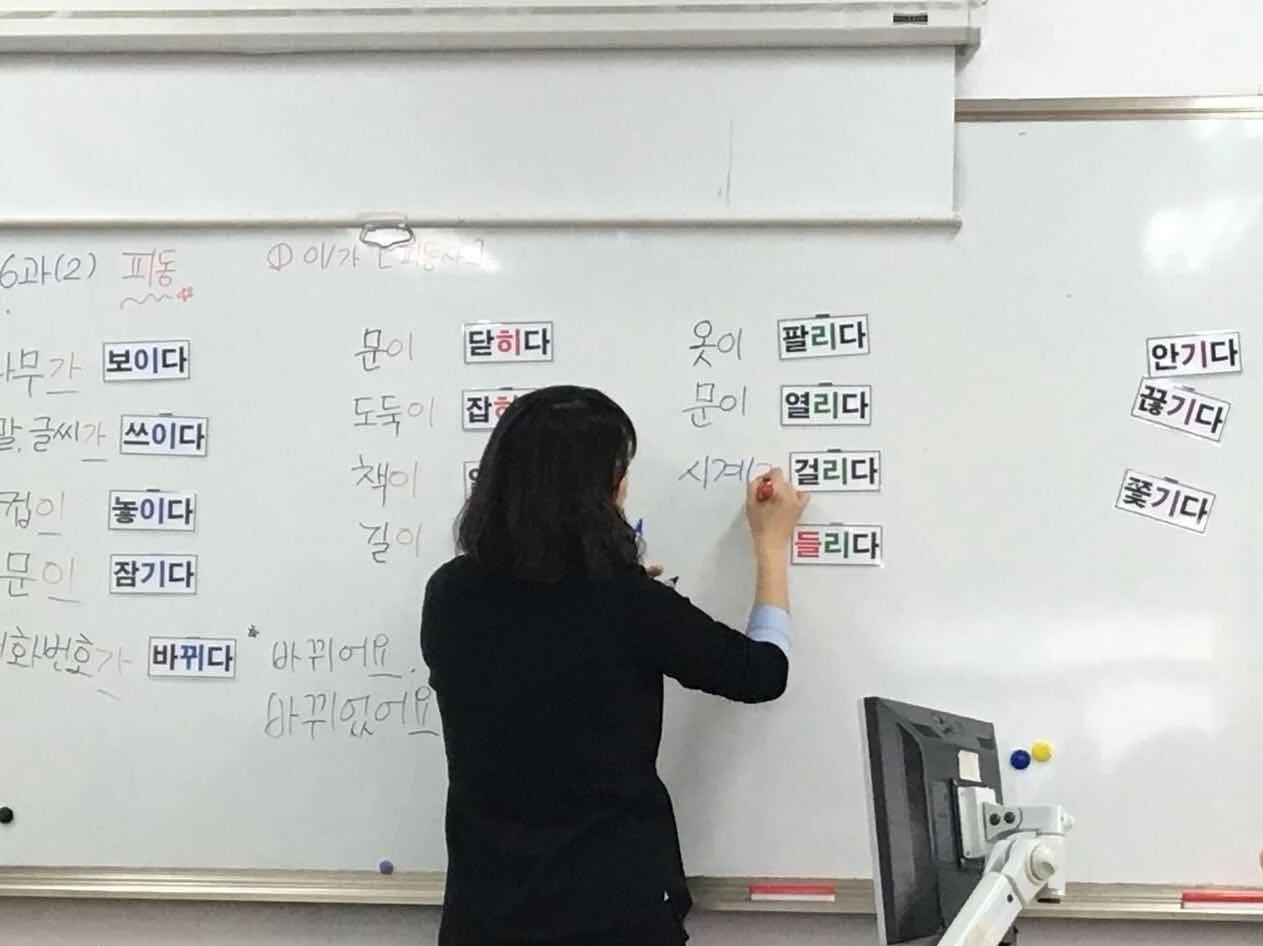 6과(2) 피동
① 이/가
나무가 보이다
말, 글씨가 쓰이다
컵이 놓이다
문이 잠기다
화번호가 바뀌다
* 바뀌어요.
바뀌었어요
문이 닫히다
도둑이 잡
책이
길이
옷이 팔리다
문이 열리다
시계 걸리다
들리다
안기다
끊기다
쫓기다